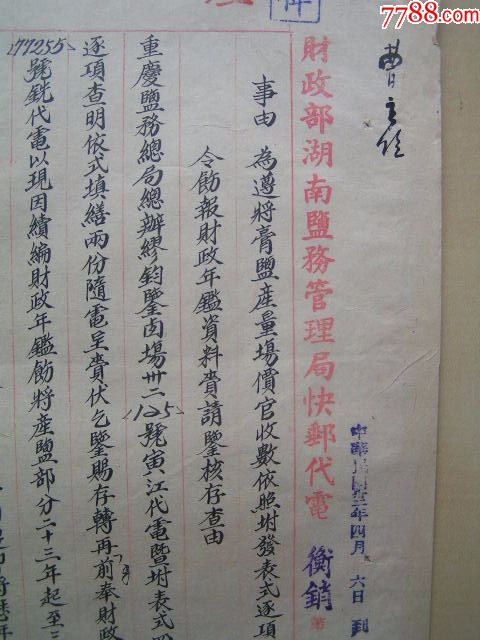 7788.com
曹主任
財政部湖南鹽務管理局快郵代電 衡銷
中華民國三年四月六日到
事由 為遵將膏鹽產量場價官收數依照坿發表式逐項
令飭報財政年鑑資料賫請鑒核存查由
重慶鹽務總局總辦繆鈞鑒卤場卅二
號寅江代電暨坿表式
逐項查明依式填繕兩份隨電呈賫伏乞鑒賜存轉再前奉財政
77255
號銑代電以現因續編財政年鑑飭將產鹽部分二十三年起至